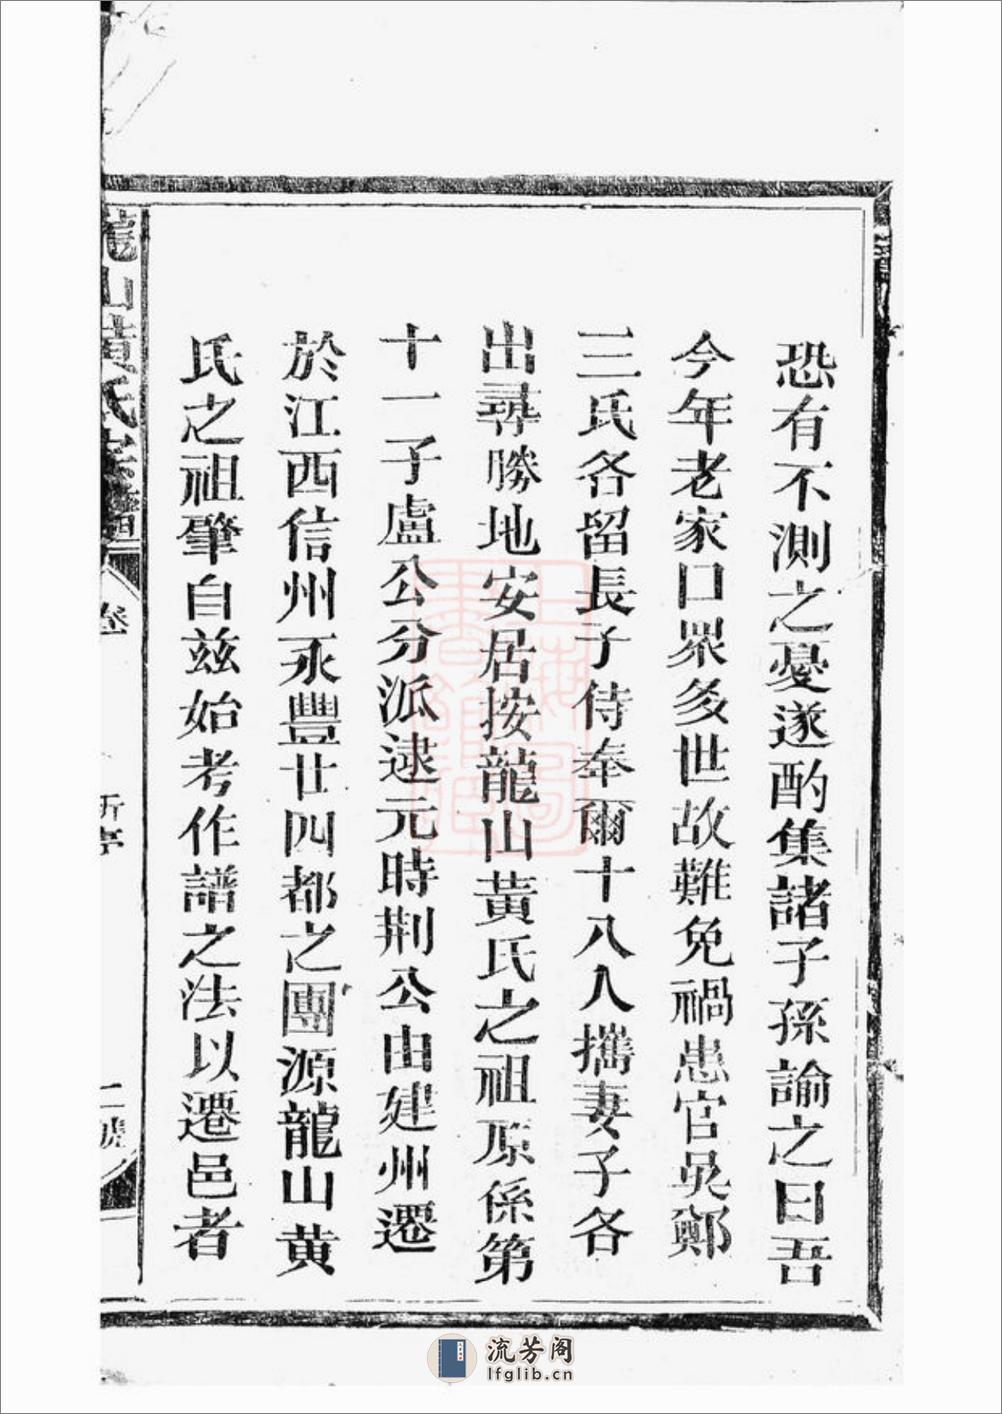 恐有不測之憂遂酌集諸子孫諭之曰吾
今年老家口眾多世故難免禍患官吳鄭
三氏各留長子侍奉爾十八人攜妻子各
出尋勝地安居按龍山黃氏之祖原係第
十一子盧公分派逮元時荆公由建州遷
於江西信州永豐廿四都之團源龍山黄
氏之祖肇自兹始考作譜之法以遷邑者
龍山黃氏宗譜
卷
流芳阁
lfglib.cn